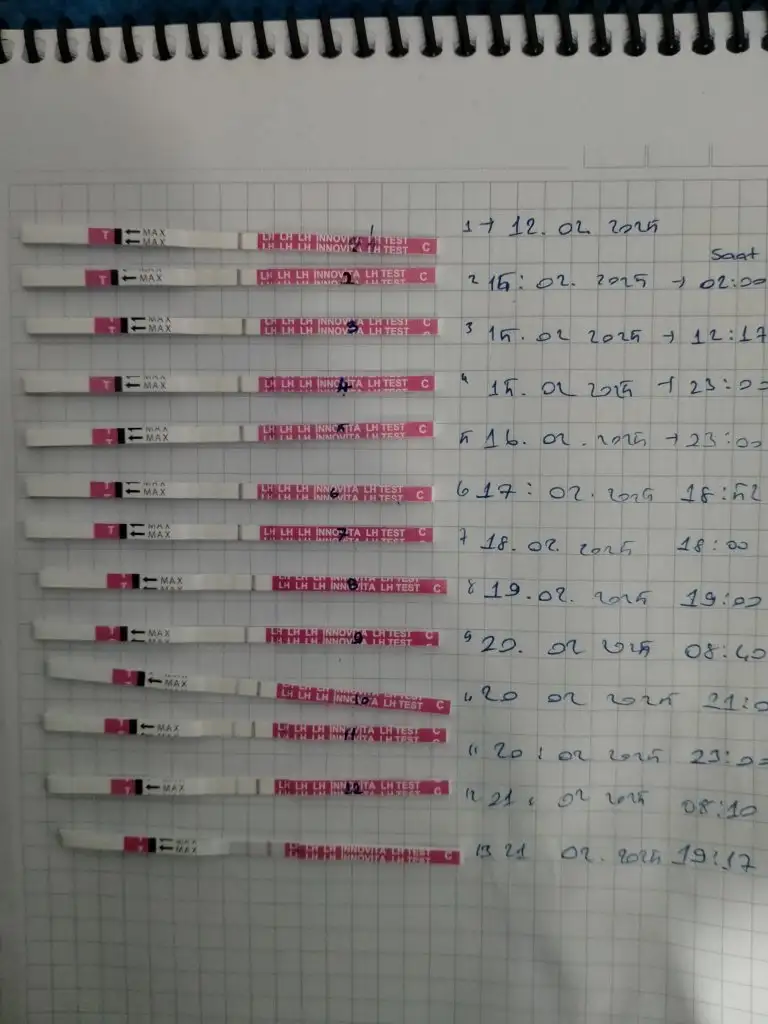 T MAX MAX LH LH LH INNOVITA LH TEST C 1 → 12. 02. 2025
Saat
T MAX LH LH LH INNOVITA LH TEST C 2 2 15: 02. 2025 → 02:00
T MAX MAX LH LH LH INNOVITA LH TEST C 3 3 15. 02 2025 → 12:17
T MAX LH LH LH INNOVITA LH TEST C 4 4 15. 02 2025 → 23:00
T MAX MAX LH LH LH INNOVITA LH TEST C 5 5 16. 02. 2025 → 23:00
T MAX LH LH LH INNOVITA LH TEST C 6 6 17: 02. 2025 18:52
T MAX MAX LH LH LH INNOVITA LH TEST C 7 7 18. 02. 2025 18:00
T MAX LH LH LH INNOVITA LH TEST C 8 8 19. 02. 2025 19:00
T MAX LH LH LH INNOVITA LH TEST C 9 9 20. 02 2025 08:40
T MAX LH LH LH INNOVITA LH TEST C 10 20 02 2025
T MAX LH LH LH INNOVITA LH TEST C 11 11 20: 02 2025 23:00
T MAX LH LH LH INNOVITA LH TEST C 12 12 21. 02 2025 08:10
T MAX MAX LH LH LH INNOVITA LH TEST C 13 21 02. 2025 19:17